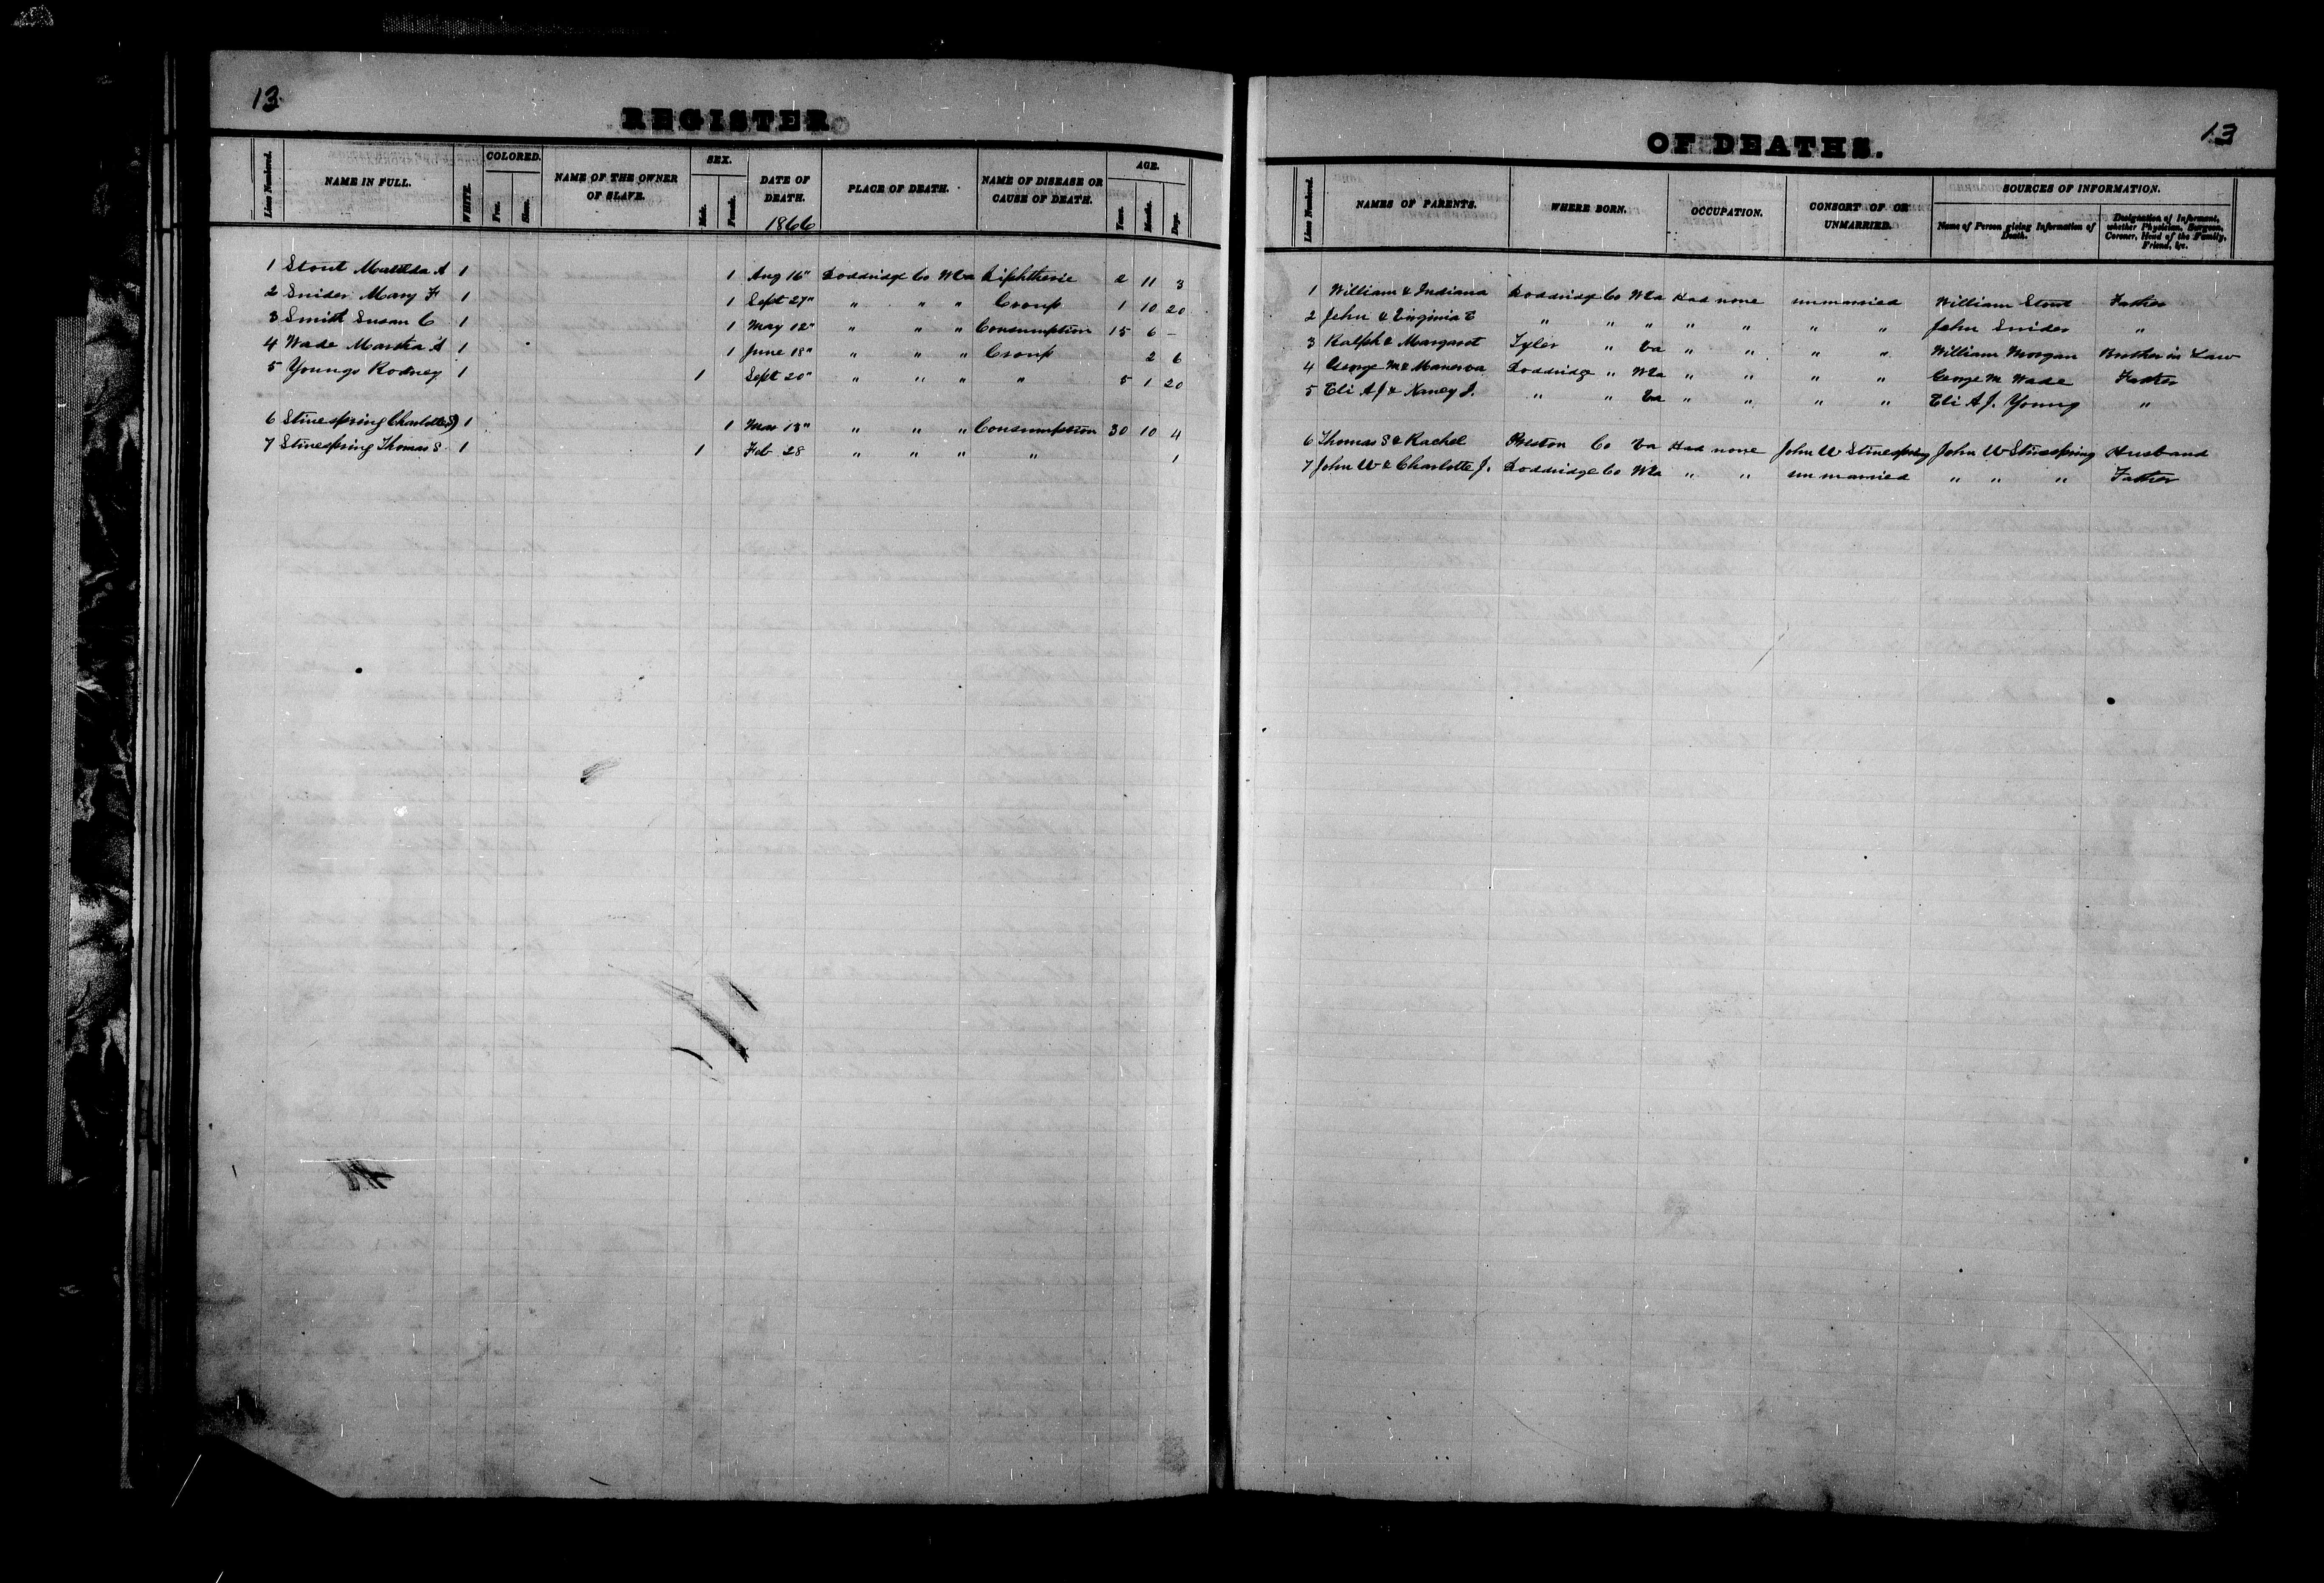 13
REGISTER
Lines Numbered. NAME IN FULL. WHITE. COLORED. Free. Slave. NAME OF THE OWNER OF SLAVE. SEX. Male. Female. DATE OF DEATH. 1866 PLACE OF DEATH. NAME OF DISEASE OR CAUSE OF DEATH. AGE. Years. Months. Days.
1 Stout Matilda A 1 1 Aug 16" Doddridge Co WVa Diphtheria 2 11 3
2 Snider Mary F 1 1 Sept 27" " " " Croup 1 10 20
3 Smith Susan C 1 1 May 12" " " " Consumption 15 6 —
4 Wade Martha A 1 1 June 18" " " " Croup 2 6
5 Youngs Rodney 1 1 Sept 20" " " " " 5 1 20
6 Stinespring Charlotte J 1 1 Mar 13" " " " Consumption 30 10 4
7 Stinespring Thomas S 1 1 Feb 28 " " " " 1
13
OF DEATHS.
Lines Numbered. NAMES OF PARENTS. WHERE BORN. OCCUPATION. CONSORT OF OR UNMARRIED. SOURCES OF INFORMATION. Name of Person giving Information of Death. Designation of Informant, whether Physician, Surgeon, Coroner, Head of the Family, Friend, &c.
1 William & Indiana Doddridge Co WVa Had none unmarried William Stout Father
2 John & Virginia E " " " " " " " John Snider "
3 Ralph & Margaret Tyler " Va " " " " William Morgan Brother in Law
4 George M & Manerva Doddridge " WVa " " " " George M Wade Father
5 Eli A J & Nancy J. " " Va " " " " Eli A J. Young "
6 Thomas S & Rachel Preston Co Va Had none John W Stinespring John W Stinespring Husband
7 John W & Charlotte J. Doddridge Co WVa " " unmarried " " " Father